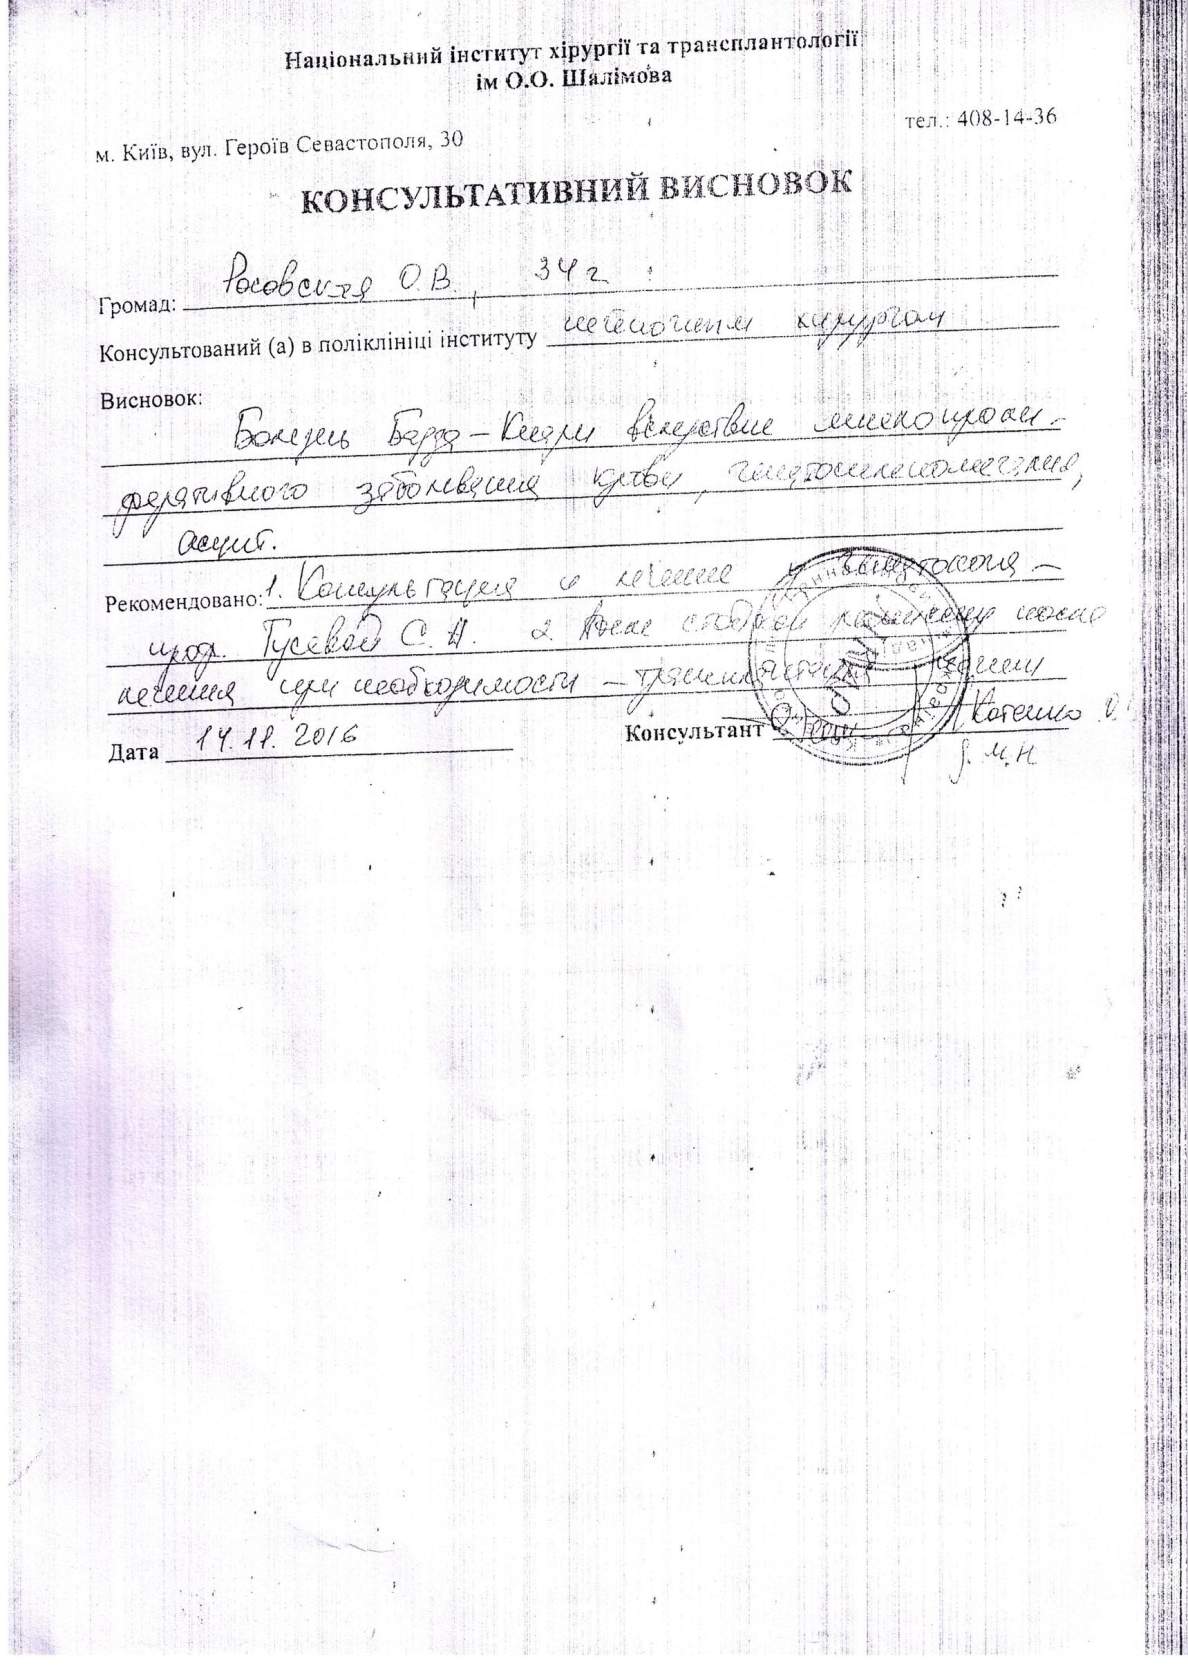 Національний інститут хірургії та трансплантології
ім О.О. Шалімова
тел.: 408-14-36
м. Київ, вул. Героїв Севастополя, 30
КОНСУЛЬТАТИВНИЙ ВИСНОВОК
Громад: Росовская О.В., 34 г.
Консультований (а) в поліклініці інституту хирургом
Висновок:
Болезнь Бадда-Киари вследствие миелопроли-
феративного заболевания крови, гепатоспленомегалия,
асцит.
Рекомендовано: 1. Консультация и лечение у гематолога -
проф. Гусевой С.А. 2. После
лечения при необходимости - трансплантация печени
Дата 14.11.2016
Консультант Котенко О.
д.м.н